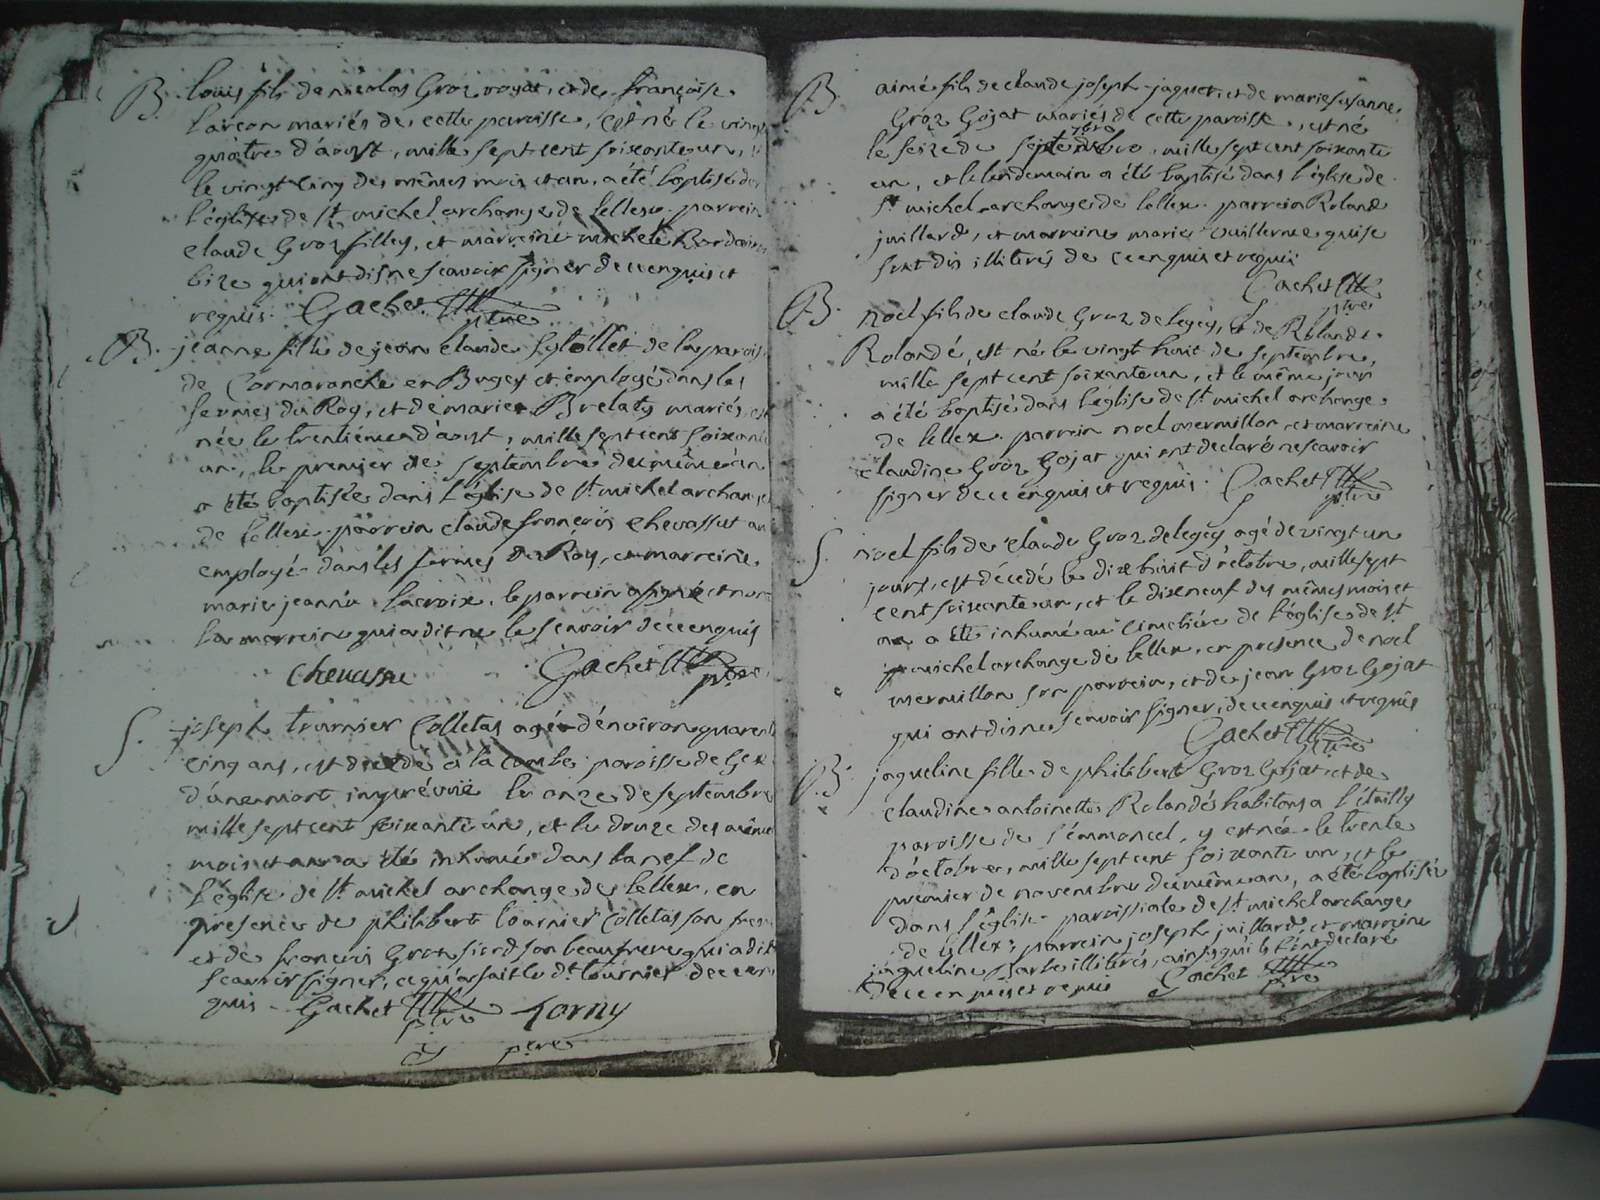 B. Louis fils de nicolas Groz royat, et de françoise
Larçon mariés de cette paroisse, est né le vingt
quatre d'aoust, mille sept cent soixante un,
le vingt cinq des mêmes mois et an, a été baptisé dans
l'église de St michel archange de lellex. parrein
claude Groz filley, et marreine michele
qui ont dis ne scavoir signer de ce enquis et
requis. Gachet ptre
B. jeanne fille de jean claude de la paroisse
de Cormaranche en Bugey et employé dans les
fermes du Roy, et de marie Brelaty mariés, est
née le trentième d'aoust, mille sept cent soixante
un, le premier de septembre du même an
a été baptisée dans l'église de St michel archange
de lellex. parrein claude françois chevassut
employé dans les fermes du Roy, et marreine
marie jeanne lacroix, le parrein a signé et non
la marreine qui a dit ne le scavoir de ce enquis
chevassu Gachet ptre
S. joseph tournier Colletas agé d'environ quarente
cinq ans, est décédé a la combe paroisse de Gex
d'une mort imprévüe le onze de septembre
mille sept cent soixante un, et le douze des même
mois et an a été inhumé dans la nef de
l'église de St michel archange de lellex, en
presence de philibert tournier Colletas son frere
et de francois Groz son beaufrere qui a dit
scavoir signer, ce qu'a fait le dt tournier de ce en
quis. Gachet ptre
B. aimé fils de claude joseph jaquet, et de marie susanne
Groz Gojat mariés de cette paroisse, est né
le seize de septembre 7bre, mille sept cent soixante
un, et le lendemain a été baptisé dans l'église de
St michel archange de lellex. parrein Roland
juillard, et marreine marie vuillerme qui se
sont dis illiterés de ce enquis et requis
Gachet ptre
B. noel fils de claude Groz delegey, et de Rolande
Rolandé, est né le vingt huit de septembre,
mille sept cent soixante un, et le même jour
a été baptisé dans l'église de St michel archange
de lellex. parrein noel mermillon, et marreine
claudine Groz Gojat qui ont declaré ne scavoir
signer de ce enquis et requis. Gachet ptre
S. noel fils de claude Groz delegey agé de vingt un
jours, est décédé le dix huit d'octobre, mille sept
cent soixante un, et le dix neuf des mêmes mois et
an a été inhumé au cimetière de l'église de St
michel archange de lellex, en presence de noel
mermillon son parrein, et de jean Groz Gojat
qui ont dis ne scavoir signer, de ce enquis et requis
Gachet ptre
B. jaqueline fille de philibert Groz Gojat, et de
claudine antoinette Rolandé habitans a l'étailly
paroisse de s'emmoncel, y est née le trente
d'octobre, mille sept cent soixante un, et le
premier de novembre du même an, a été baptisée
dans l'église paroissiale de St michel archange
de lellex; parrein joseph juillard, et marreine
jaqueline illiterés, ainsi qu'ils l'ont declaré
de ce enquis et requis Gachet ptre